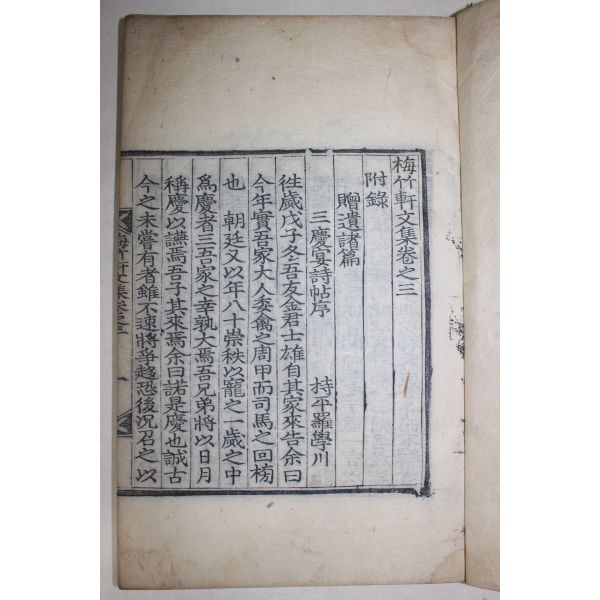 梅竹軒文集卷之三
附錄
贈遺諸篇
三慶宴詩帖序 持平羅學川
徃歲戊子冬吾友金君士雄自其家來告余曰
今年實吾家大人委禽之周甲而司馬之回榜
也 朝廷又以年八十崇秩以寵之一歲之中
爲慶者三吾家之幸孰大焉吾兄弟將以日月
稱慶以讌焉吾子其來焉余曰諾是慶也誠古
今之未嘗有者雖不速將爭趍恐後況召之以
梅竹軒文集卷之三 一